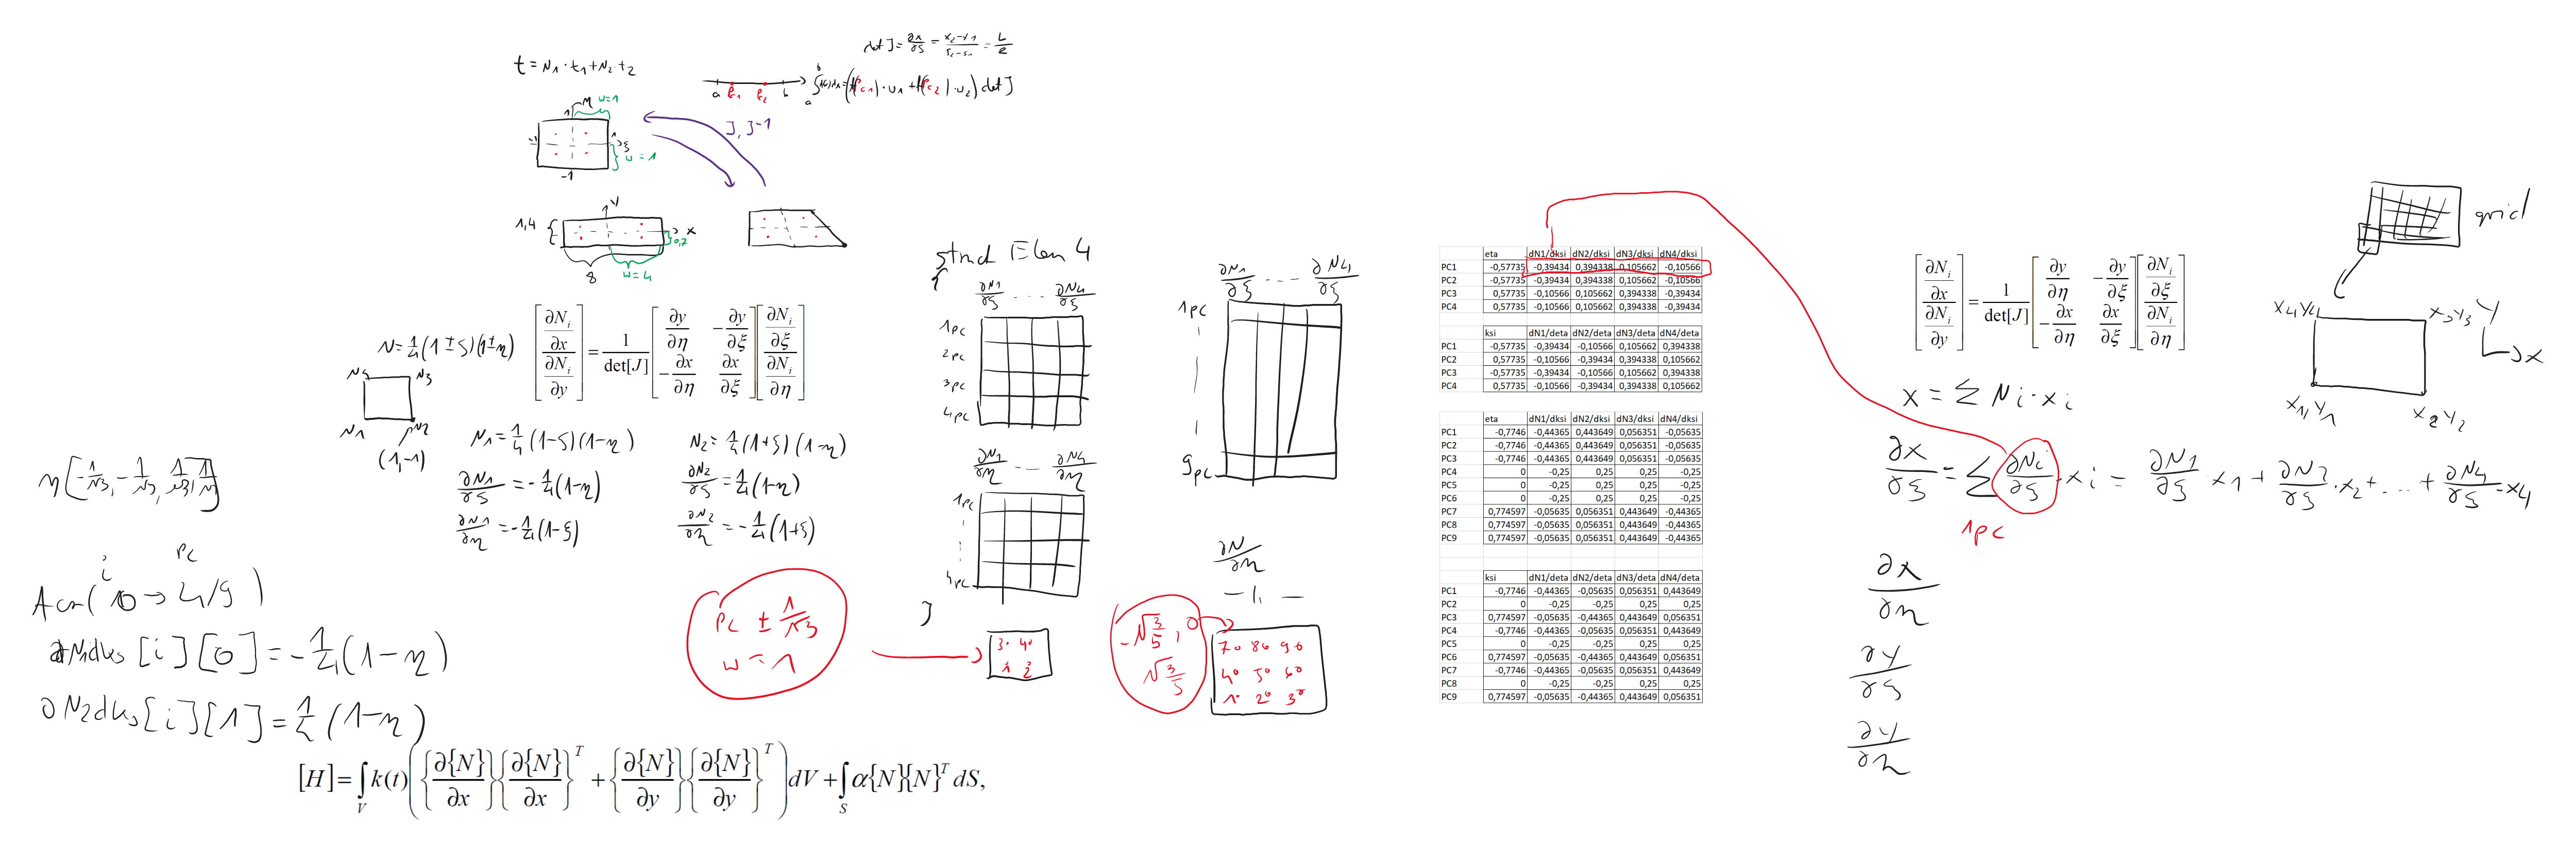 t = N1 · t1 + N2 t2
det J = ∂x/∂ξ = (x2-x1)/(ξ2-ξ1) = L/2
a b
∫ab f(x)dx = (f(Pc1) · w1 + f(Pc2) · w2) det J
η
w=1
1
-1
1
ξ
w = 1
-1
J, J-1
1,4
y
x
0,7
8
w=4
N = 1/4 (1 ± ξ)(1 ± η)
N4 N3
N1 N2
(1,-1)
[∂Ni/∂x ∂Ni/∂y] = 1/det[J] [∂y/∂η -∂y/∂ξ -∂x/∂η ∂x/∂ξ] [∂Ni/∂ξ ∂Ni/∂η]
N1 = 1/4 (1-ξ)(1-η)
∂N1/∂ξ = -1/4 (1-η)
∂N1/∂η = -1/4 (1-ξ)
N2 = 1/4 (1+ξ)(1-η)
∂N2/∂ξ = 1/4 (1-η)
∂N2/∂η = -1/4 (1+ξ)
η [-1/√3, -1/√3, 1/√3, 1/√3]
i pc
→ 4/9 )
[i][0] = -1/4 (1-η)
∂N2dks [i][1] = 1/4 (1-η)
[H] = ∫V k(t) ( {∂{N}/∂x} {∂{N}/∂x}T + {∂{N}/∂y} {∂{N}/∂y}T ) dV + ∫S α{N}{N}T dS,
pc ± 1/√3
w = 1
struct Elem 4
{
∂N1/∂ξ ... ∂N4/∂ξ
1pc
2pc
3pc
4pc
∂N1/∂η ... ∂N4/∂η
1pc
4pc
}
3 4
1 2
∂N1/∂ξ .... ∂N4/∂ξ
1pc
9pc
∂N/∂η
-√3/5, 0
√3/5
7 8 9
4 5 6
1 2 3
eta dN1/dksi dN2/dksi dN3/dksi dN4/dksi
PC1 -0,57735 -0,39434 0,394338 0,105662 -0,10566
PC2 -0,57735 -0,39434 0,394338 0,105662 -0,10566
PC3 0,57735 -0,10566 0,105662 0,394338 -0,39434
PC4 0,57735 -0,10566 0,105662 0,394338 -0,39434
ksi dN1/deta dN2/deta dN3/deta dN4/deta
PC1 -0,57735 -0,39434 -0,10566 0,105662 0,394338
PC2 0,57735 -0,10566 -0,39434 0,394338 0,105662
PC3 -0,57735 -0,39434 -0,10566 0,105662 0,394338
PC4 0,57735 -0,10566 -0,39434 0,394338 0,105662
eta dN1/dksi dN2/dksi dN3/dksi dN4/dksi
PC1 -0,7746 -0,44365 0,443649 0,056351 -0,05635
PC2 -0,7746 -0,44365 0,443649 0,056351 -0,05635
PC3 -0,7746 -0,44365 0,443649 0,056351 -0,05635
PC4 0 -0,25 0,25 0,25 -0,25
PC5 0 -0,25 0,25 0,25 -0,25
PC6 0 -0,25 0,25 0,25 -0,25
PC7 0,774597 -0,05635 0,056351 0,443649 -0,44365
PC8 0,774597 -0,05635 0,056351 0,443649 -0,44365
PC9 0,774597 -0,05635 0,056351 0,443649 -0,44365
ksi dN1/deta dN2/deta dN3/deta dN4/deta
PC1 -0,7746 -0,44365 -0,05635 0,056351 0,443649
PC2 0 -0,25 -0,25 0,25 0,25
PC3 0,774597 -0,05635 -0,44365 0,443649 0,056351
PC4 -0,7746 -0,44365 -0,05635 0,056351 0,443649
PC5 0 -0,25 -0,25 0,25 0,25
PC6 0,774597 -0,05635 -0,44365 0,443649 0,056351
PC7 -0,7746 -0,44365 -0,05635 0,056351 0,443649
PC8 0 -0,25 -0,25 0,25 0,25
PC9 0,774597 -0,05635 -0,44365 0,443649 0,056351
[∂Ni/∂x ∂Ni/∂y] = 1/det[J] [∂y/∂η -∂y/∂ξ -∂x/∂η ∂x/∂ξ] [∂Ni/∂ξ ∂Ni/∂η]
x = Σ Ni · xi
∂x/∂ξ = Σ ∂Ni/∂ξ · xi = ∂N1/∂ξ x1 + ∂N2/∂ξ · x2 + ... + ∂N4/∂ξ · x4
1pc
∂x/∂η
∂y/∂ξ
∂y/∂η
grid
x4y4 x3y3
x1,y1 x2y2
y
x